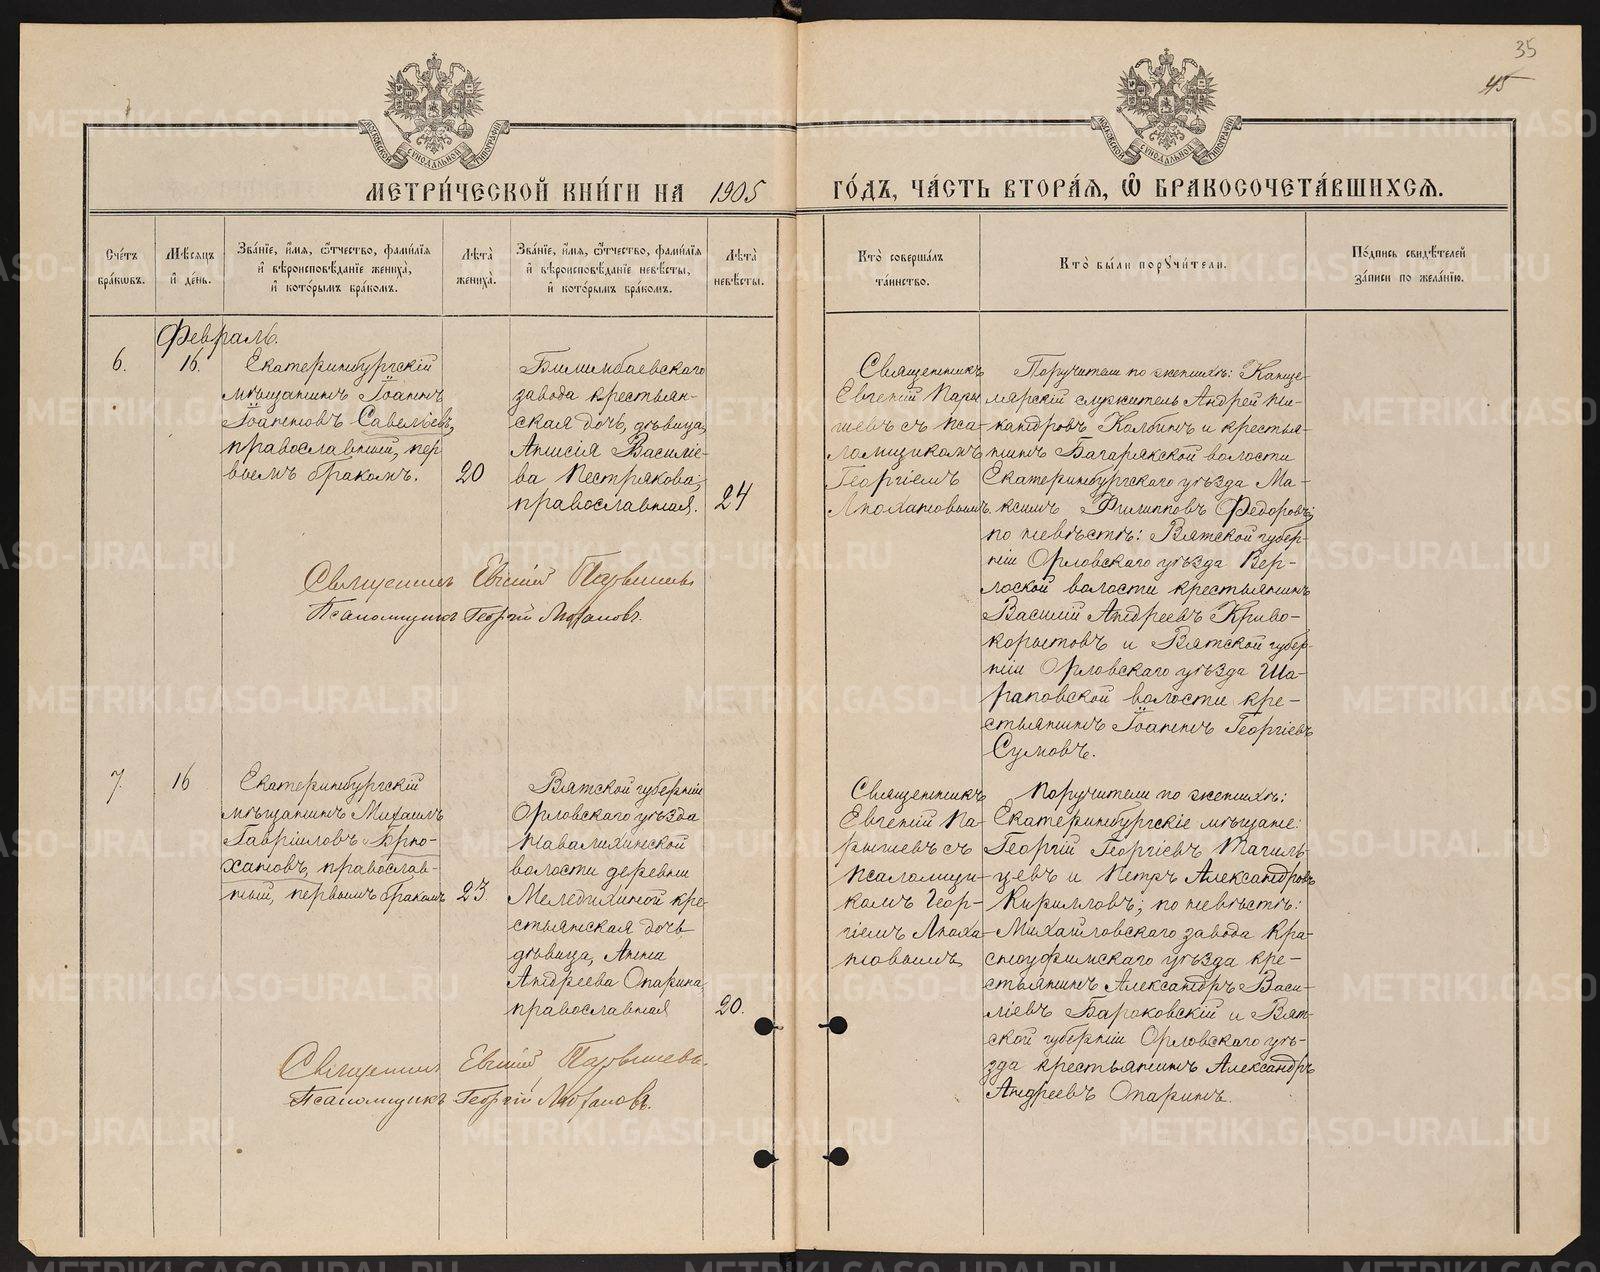 35
45
МОСКОВСКОЙ СУНОДАЛЬНОЙ ТИПОГРАФИИ
МОСКОВСКОЙ СУНОДАЛЬНОЙ ТИПОГРАФИИ
МЕТРИ́ЧЕСКОЙ КНИ́ГИ НА 1905
ГО́ДЪ, ЧА́СТЬ ВТОРА́Я, Ѿ БРАКОСОЧЕТА́ВШИХСЯ.
Сче́тъ бра́кѡвъ.
Мѣ́сяцъ и҆ де́нь.
Зва́нїе, и҆́мя, ѻ҆́тчество, фами́лїя и҆ вѣроисповѣ́данїе жениха̀, и҆ кото́рымъ бра́комъ.
Лѣта̀ жениха̀.
Зва́нїе, и҆́мя, ѻ҆́тчество, фами́лїя и҆ вѣроисповѣ́данїе невѣ́сты, и҆ кото́рымъ бра́комъ.
Лѣта̀ невѣ́сты.
Кто̀ соверша́лъ та́инство.
Кто̀ бы́ли порꙋчи́тели.
По́дпись свидѣ́телей за́писи по жела́нїю.
Февраль.
6.
16.
Екатеринбургскій
мѣщанинъ Іоаннъ
Іоанновъ Савельевъ,
православный, пер
вымъ бракомъ.
20
Билимбаевскаго
завода крестьян-
ская дочь, дѣвица,
Анисія Василіе-
ва Пестрякова,
православная.
24
Священникъ
Евгеній Пары
шевъ съ пса-
ломщикомъ
Георгіемъ
Люхановымъ.
Поручители по женихѣ: Канце-
лярскій служитель Андрей Ни-
кандровъ Колбинъ и крестья-
нинъ Багарякской волости
Екатеринбургскаго уѣзда Ма-
ксимъ Филипповъ Федоровъ;
по невѣстѣ: Вятской губер-
ніи Орловскаго уѣзда Вер-
лоской волости крестьянинъ
Василій Андреевъ Криво-
корытовъ и Вятской губер-
ніи Орловскаго уѣзда Ша-
рановской волости кре-
стьянинъ Іоаннъ Георгіевъ
Сумовъ.
Священникъ Евгеній Парышевъ
Псаломщикъ Георгій Люхановъ.
7.
16
Екатеринбургскій
мѣщанинъ Михаилъ
Гавріиловъ Брю-
хановъ, православ-
ный, первымъ бракомъ
23
Вятской губерніи
Орловскаго уѣзда
Навалихинской
волости деревни
Меледихиной кре-
стьянская дочь
дѣвица, Анна
Андреева Опарина,
православная
20.
Священникъ
Евгеній Па-
рышевъ съ
псаломщи-
комъ Геор-
гіемъ Люха-
новымъ
Поручители по женихѣ:
Екатеринбургскіе мѣщане:
Георгій Георгіевъ Тагиль-
цевъ и Петръ Александровъ
Кирилловъ; по невѣстѣ:
Михайловскаго завода Кра-
сноуфимскаго уѣзда кре-
стьянинъ Александръ Васи-
ліевъ Бароковскій и Вят-
ской губерніи Орловскаго уѣ-
зда крестьянинъ Александръ
Андреевъ Опаринъ.
Священникъ Евгеній Парышевъ.
Псаломщикъ Георгій Люхановъ.
METRIKI.GASO-URAL.RU